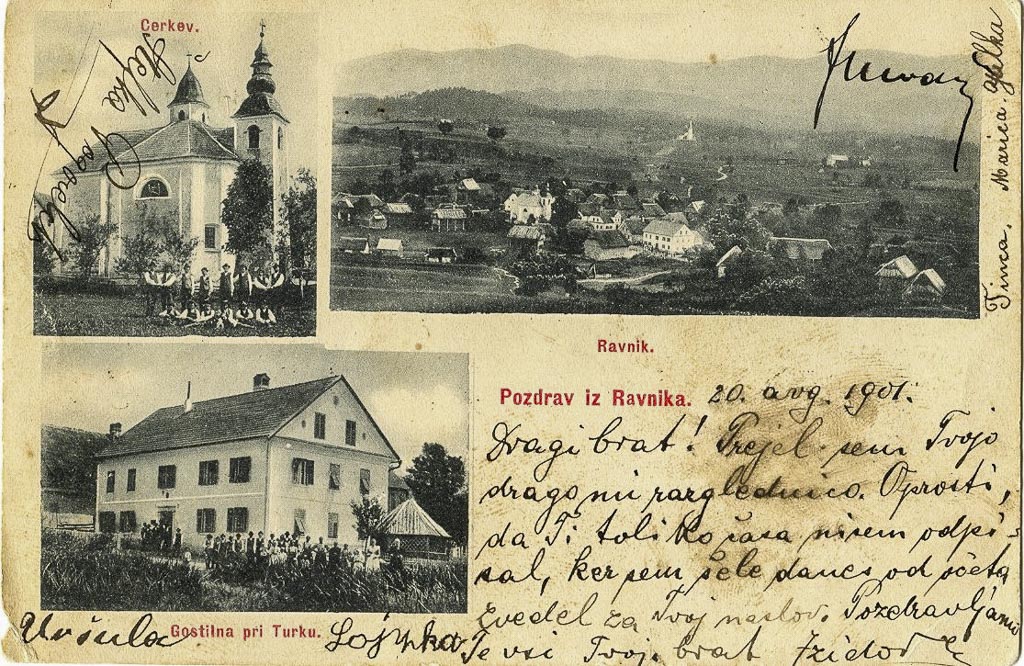 Cerkev.
Ravnik.
Pozdrav iz Ravnika. 20. avg. 1901.
Dragi brat! Prejel sem Tvojo
drago mi razglednico. Oprosti,
da Ti toliko časa nisem odpi-
sal, ker sem šele danes od očeta
zvedel za Tvoj naslov. Pozdravljamo
Te vsi Tvoj brat Izidor
Uršula
Gostilna pri Turku.
Tinca. Marica. Jelka